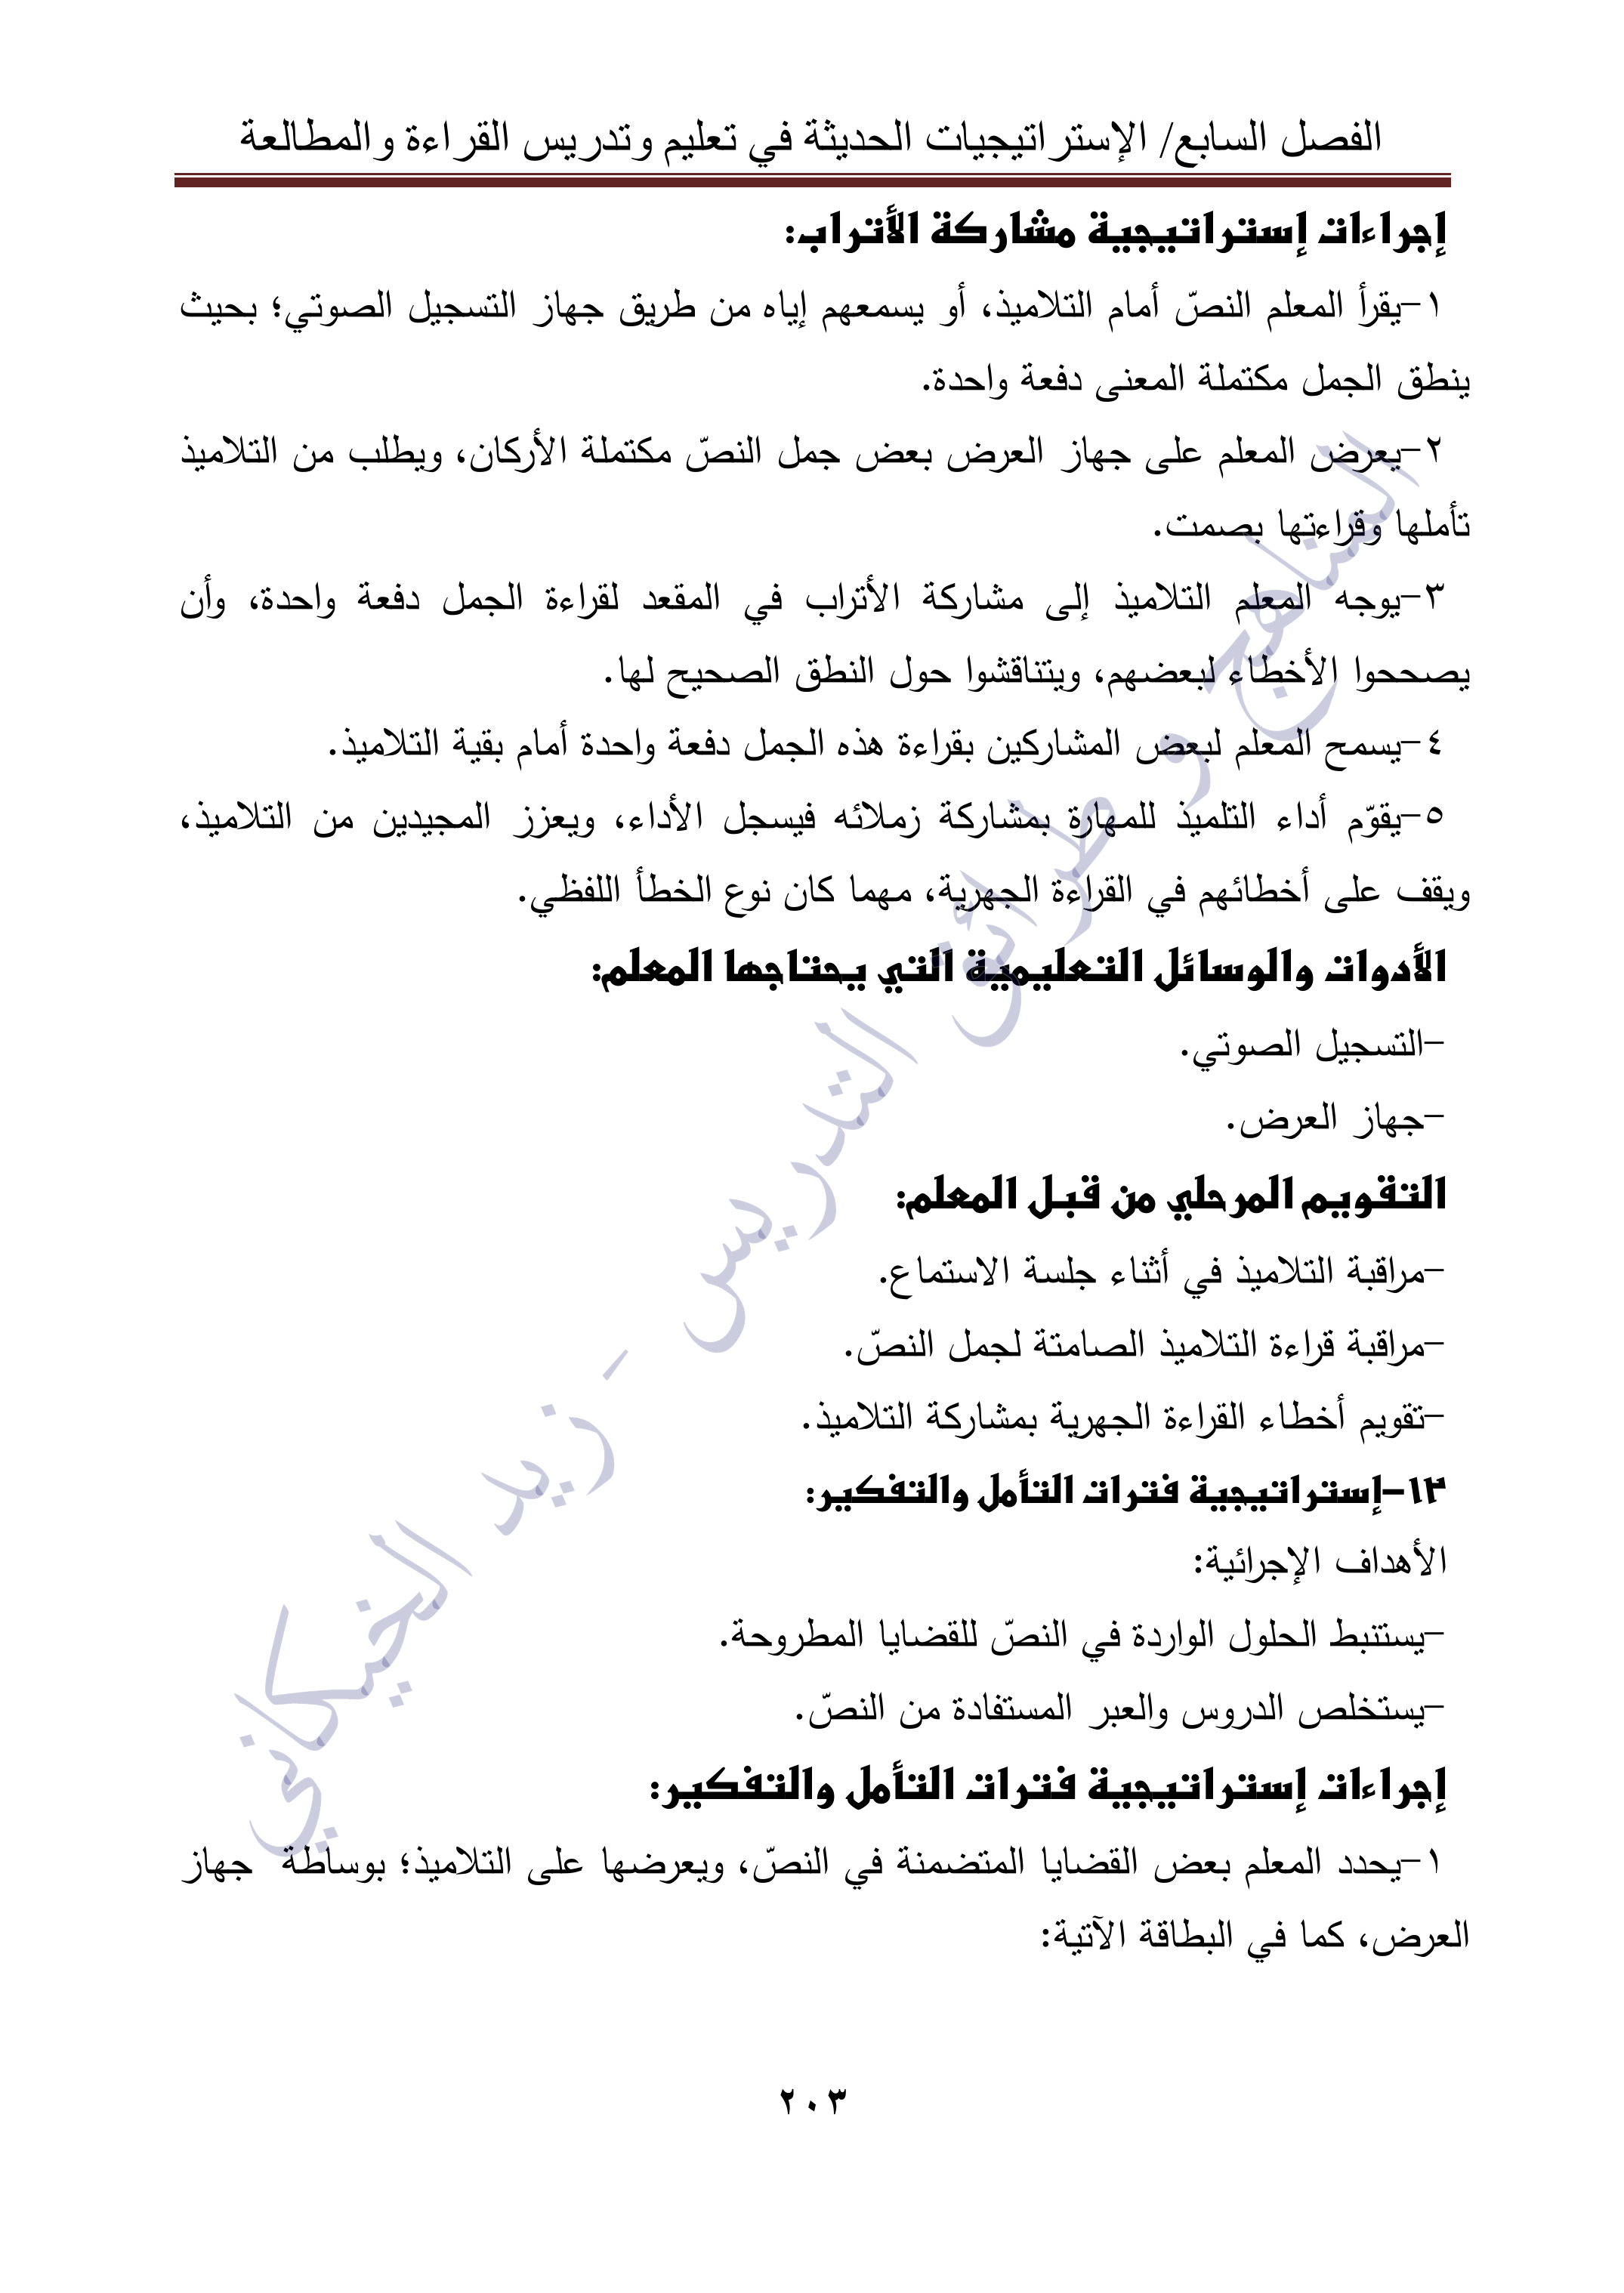 الفصل السابع/ الإستراتيجيات الحديثة في تعليم وتدريس القراءة والمطالعة
إجراءات إستراتيجية مشاركة الأتراب:
١-يقرأ المعلم النصّ أمام التلاميذ، أو يسمعهم إياه من طريق جهاز التسجيل الصوتي؛ بحيث
ينطق الجمل مكتملة المعنى دفعة واحدة.
٢-يعرض المعلم على جهاز العرض بعض جمل النصّ مكتملة الأركان، ويطلب من التلاميذ
تأملها وقراءتها بصمت.
٣-يوجه المعلم التلاميذ إلى مشاركة الأتراب في المقعد لقراءة الجمل دفعة واحدة، وأن
يصححوا الأخطاء لبعضهم، ويتناقشوا حول النطق الصحيح لها.
٤-يسمح المعلم لبعض المشاركين بقراءة هذه الجمل دفعة واحدة أمام بقية التلاميذ.
٥-يقوّم أداء التلميذ للمهارة بمشاركة زملائه فيسجل الأداء، ويعزز المجيدين من التلاميذ،
ويقف على أخطائهم في القراءة الجهرية، مهما كان نوع الخطأ اللفظي.
الأدوات والوسائل التعليمية التي يحتاجها المعلم:
-التسجيل الصوتي.
-جهاز العرض.
التقويم المرحلي من قبل المعلم:
-مراقبة التلاميذ في أثناء جلسة الاستماع.
-مراقبة قراءة التلاميذ الصامتة لجمل النصّ.
-تقويم أخطاء القراءة الجهرية بمشاركة التلاميذ.
١٣-إستراتيجية فترات التأمل والتفكير:
الأهداف الإجرائية:
-يستنبط الحلول الواردة في النصّ للقضايا المطروحة.
-يستخلص الدروس والعبر المستفادة من النصّ.
إجراءات إستراتيجية فترات التأمل والتفكير:
١-يحدد المعلم بعض القضايا المتضمنة في النصّ، ويعرضها على التلاميذ؛ بوساطة جهاز
العرض، كما في البطاقة الآتية:
٢٠٣
المناهج و طرائق التدريس - زيد الخيكاني